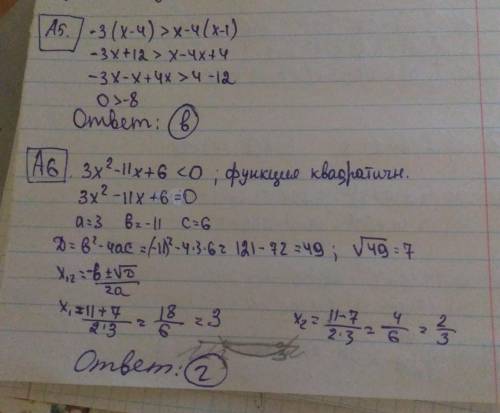 А5. -3(x-4) > x-4(x-1)
-3x+12 > x-4x+4
-3x-x+4x > 4-12
0 > -8
Ответ: в
А6 3x²-11x+6 < 0 ; функция квадратичн.
3x²-11x+6=0
a=3 в=-11 c=6
D=в²-4ac=(-11)²-4·3·6= 121-72=49 ; √49=7
x₁,₂=-в±√D/2a
x₁=11+7/2·3=18/6=3 x₂=11-7/2·3=4/6=2/3
Ответ: г